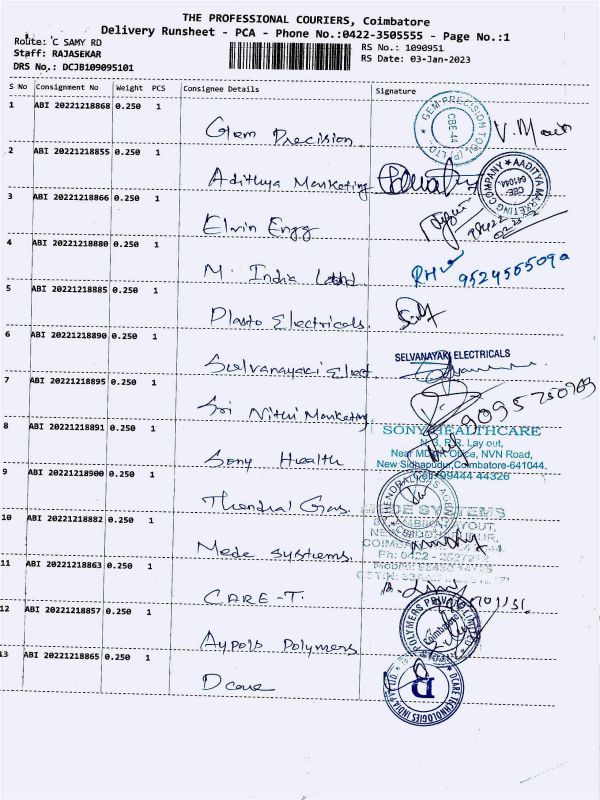 THE PROFESSIONAL COURIERS, Coimbatore
Delivery Runsheet - PCA - Phone No.:0422-3505555 - Page No.:1
Route: C SAMY RD
Staff: RAJASEKAR
DRS No.: DCJB109095101
RS No.: 1090951
RS Date: 03-Jan-2023
S No Consignment No Weight PCS Consignee Details Signature
1 ABI 20221218868 0.250 1
Gem Precision
GEM PRECISION TOOL (P) LTD CBE-44
2 ABI 20221218855 0.250 1
Adithya Marketing
AADITYA MARKETING COMPANY CBE- 641044
3 ABI 20221218866 0.250 1
Elvin Engg
4 ABI 20221218880 0.250 1
M. India
9524565090
5 ABI 20221218885 0.250 1
Plasto Electricals.
6 ABI 20221218890 0.250 1
Selvanayaki Elect
SELVANAYAKI ELECTRICALS
7 ABI 20221218895 0.250 1
Sri Nithi Marketing
8 ABI 20221218891 0.250 1
Sony Health
SONY HEALTHCARE
Lay out,
Near Office, NVN Road,
New Sidhapudur, Coimbatore-641044.
Cell: 99444 44326
9 ABI 20221218900 0.250 1
Thendral Gas.
10 ABI 20221218882 0.250 1
Mede systems.
SYSTEMS
11 ABI 20221218863 0.250 1
CARE-T.
12 ABI 20221218857 0.250 1
Aypols Polymers
POLYMERS PRIVATE LIMITED Coimbatore
13 ABI 20221218865 0.250 1
Dcare
DCARE TECHNOLOGIES INDIA PVT LTD D